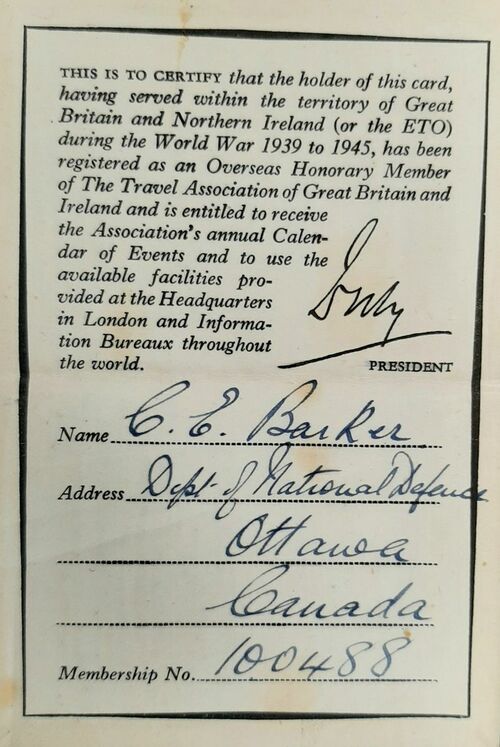 THIS IS TO CERTIFY that the holder of this card,
having served within the territory of Great
Britain and Northern Ireland (or the ETO)
during the World War 1939 to 1945, has been
registered as an Overseas Honorary Member
of The Travel Association of Great Britain and
Ireland and is entitled to receive
the Association's annual Calen-
dar of Events and to use the
available facilities pro-
vided at the Headquarters
in London and Informa-
tion Bureaux throughout
the world.
PRESIDENT
Name C. E. Barker
Address Dept. of National Defence
Ottawa
Canada
Membership No. 100488